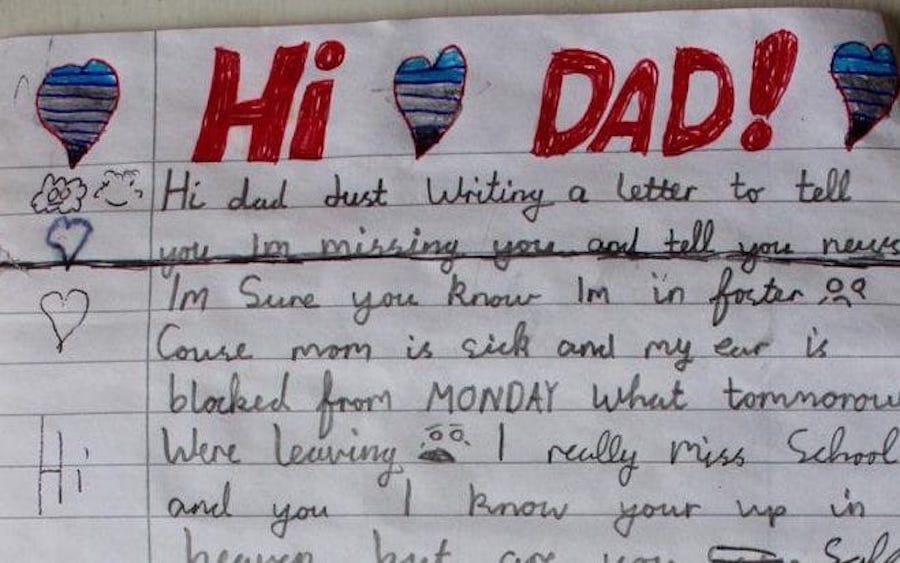 Hi DAD!
Hi dad Just Writing a letter to tell
you Im missing you and tell you news
Im Sure you know Im in foster
Couse mom is sick and my ear is
blocked from MONDAY What tommorow
Were leaving I really miss School
Hi
and you I know your up in
heaven but are you